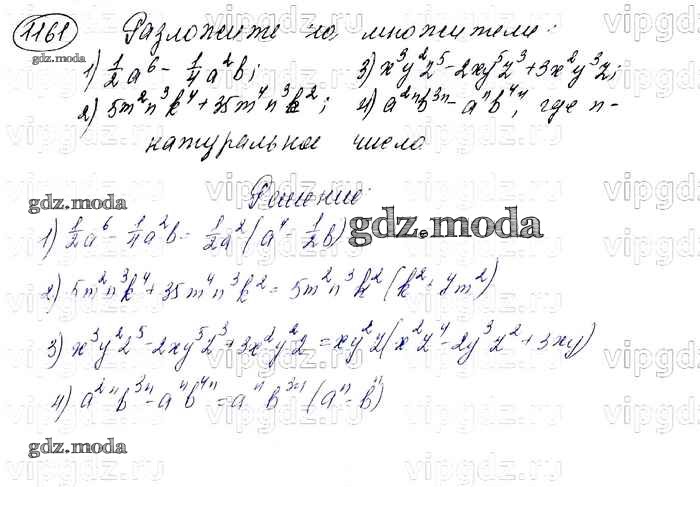 1161 Разложите на множители:
1) 1/2 a⁶ - 1/4 a²b; 3) x³y²z⁵ - 2xy⁵z³ + 3x²y³z;
2) 5m²n³k⁴ + 35m⁴n³k²; 4) a²ⁿb³ⁿ - aⁿb⁴ⁿ, где n -
натуральное число
Решение:
1) 1/2 a⁶ - 1/4 a²b = 1/2 a² (a⁴ - 1/2 b)
2) 5m²n³k⁴ + 35m⁴n³k² = 5m²n³k² (k² + 7m²)
3) x³y²z⁵ - 2xy⁵z³ + 3x²y²z = xy²z (x²z⁴ - 2y³z² + 3xy)
4) a²ⁿb³ⁿ - aⁿb⁴ⁿ = aⁿb³ⁿ (aⁿ - bⁿ)
gdz.moda
gdz.moda
gdz.moda
gdz.moda
gdz.moda
vipgdz.ru